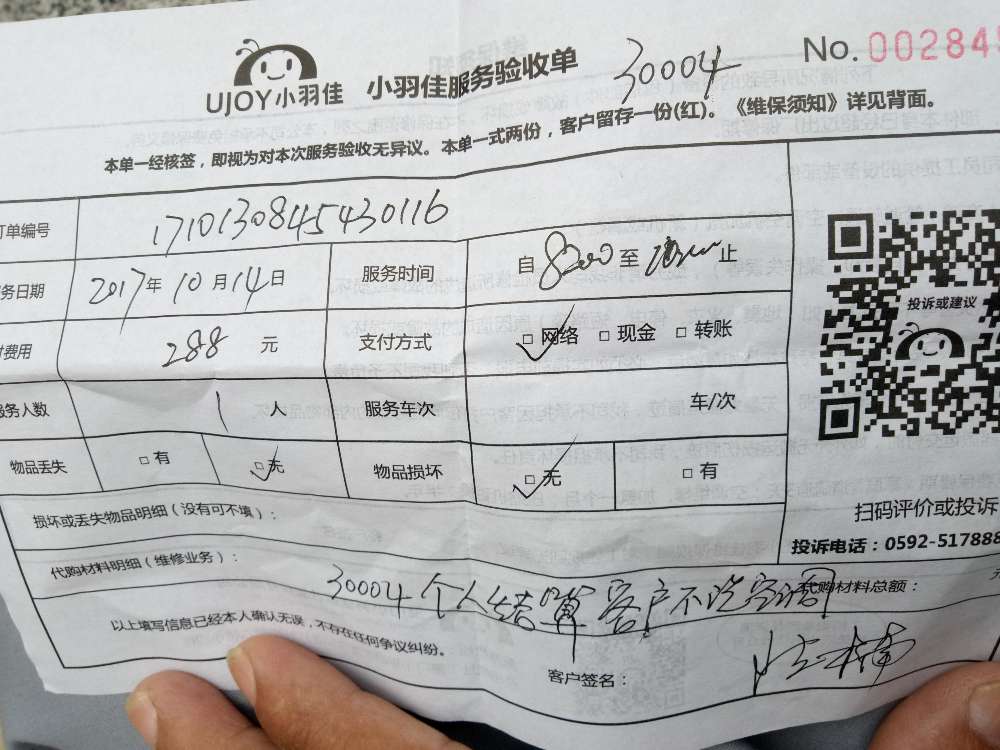 No. 002848
UJOY小羽佳 小羽佳服务验收单 30004
本单一经核签，即视为对本次服务验收无异议。本单一式两份，客户留存一份(红)。《维保须知》详见背面。
订单编号 1710130845430116
务日期 2017年10月14日 服务时间 自8:00至 止
费用 288 元 支付方式 □网络 □现金 □转账
服务人数 1 人 服务车次 车/次
物品丢失 □有 □无 物品损坏 □无 □有
投诉或建议
扫码评价或投诉
投诉电话：0592-517888
损坏或丢失物品明细（没有可不填）：
代购材料明细（维修业务）： 代购材料总额：
30004个人结算客户不洗空调
以上填写信息已经本人确认无误，不存在任何争议纠纷。
客户签名：